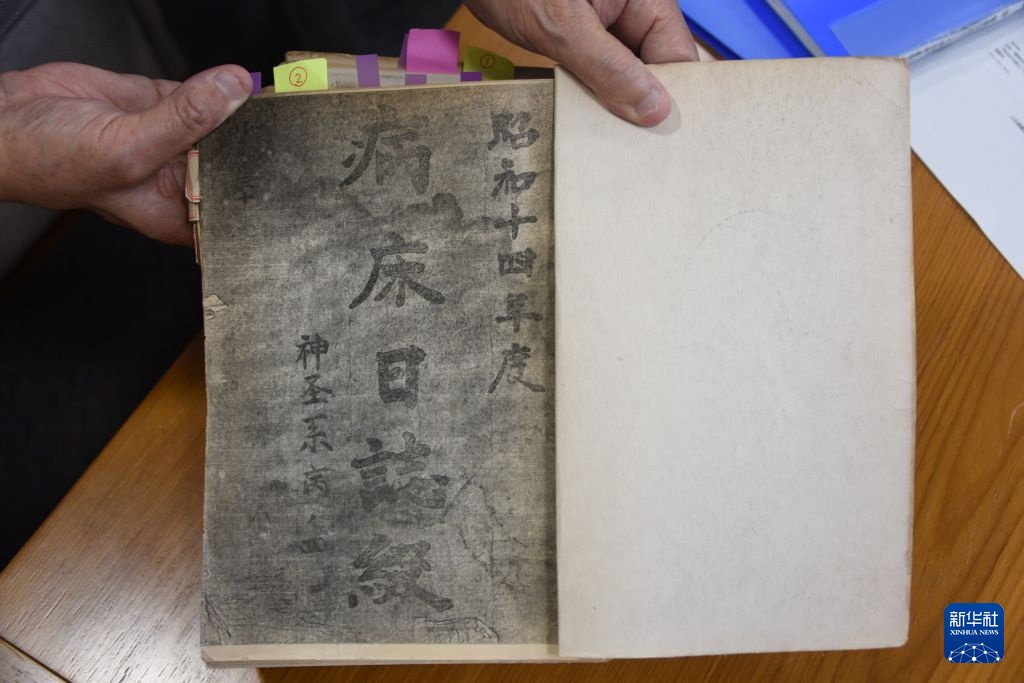 昭和十四年度
病床日誌綴
神圣系
②
①
新华社
XINHUA NEWS